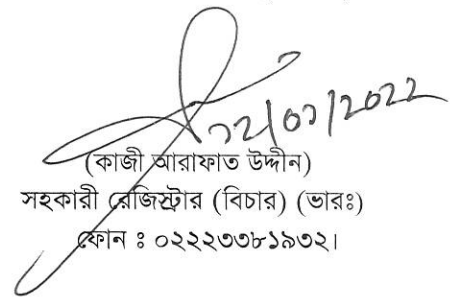 ১২/০১/২০২২
(কাজী আরাফাত উদ্দীন)
সহকারী রেজিস্ট্রার (বিচার) (ভারঃ)
ফোন ঃ ০২২২৩৩৮১৯৩২।